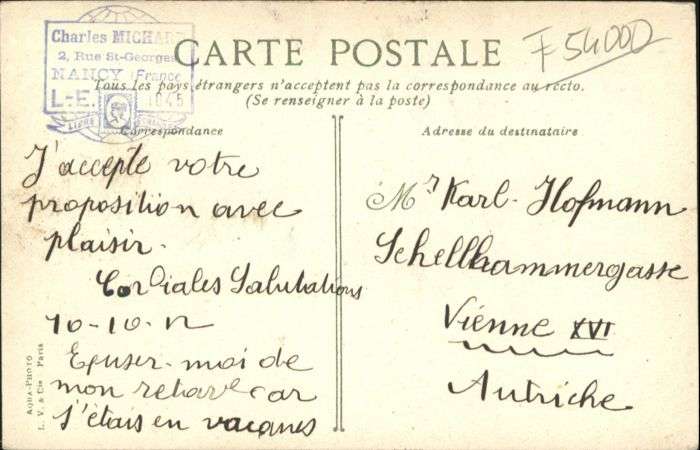 Charles MICHARD
2, Rue St-Georges
NANCY (France
L.-E. 1045
CARTE POSTALE
F 54000
Tous les pays étrangers n'acceptent pas la correspondance au recto.
(Se renseigner à la poste)
Correspondance
J'accepte votre
proposition avec
plaisir.
Cordiales Salutations
10-10-12
Excuser-moi de
mon retard car
j'étais en vacances
Adresse du destinataire
Mr Karl. Hofmann
Schellhammergasse
Vienne XVI
Autriche
AQUA-PHOTO
L. V. & Cie Paris